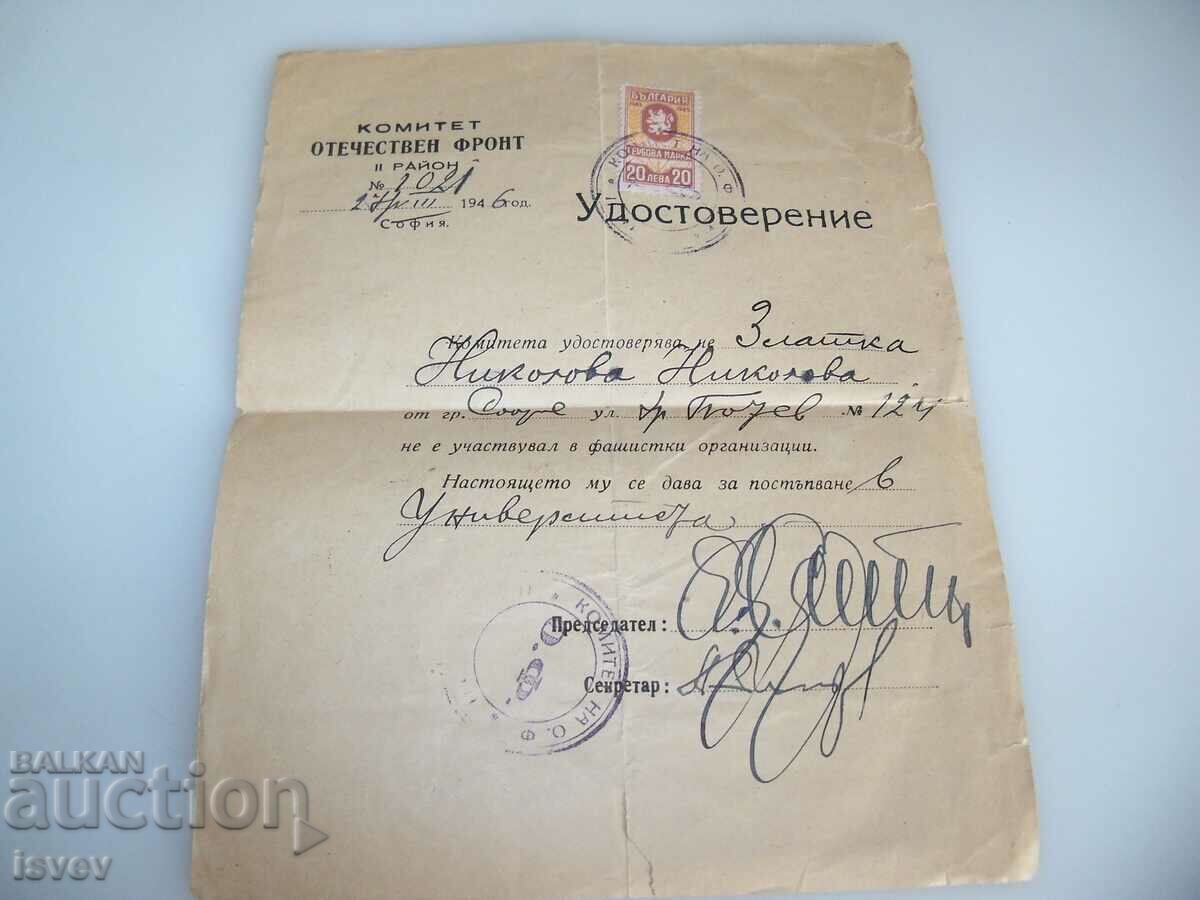 КОМИТЕТ
ОТЕЧЕСТВЕН ФРОНТ
II РАЙОН
№ 1021
III 1946 год.
София.
БЪЛГАРИЯ
1945 1945
ГЕРБОВА МАРКА
20 ЛЕВА 20
КОМИТЕТ НА О. Ф.
Удостоверение
Комитета удостоверява, че Златка
Николова Николова
от гр. ул. № 124
не е участвувал в фашистки организации.
Настоящето му се дава за постъпване в
Университета
Председател:
Секретар:
КОМИТЕТ НА О. Ф.
О. Ф.
BALKAN
auction
isvev